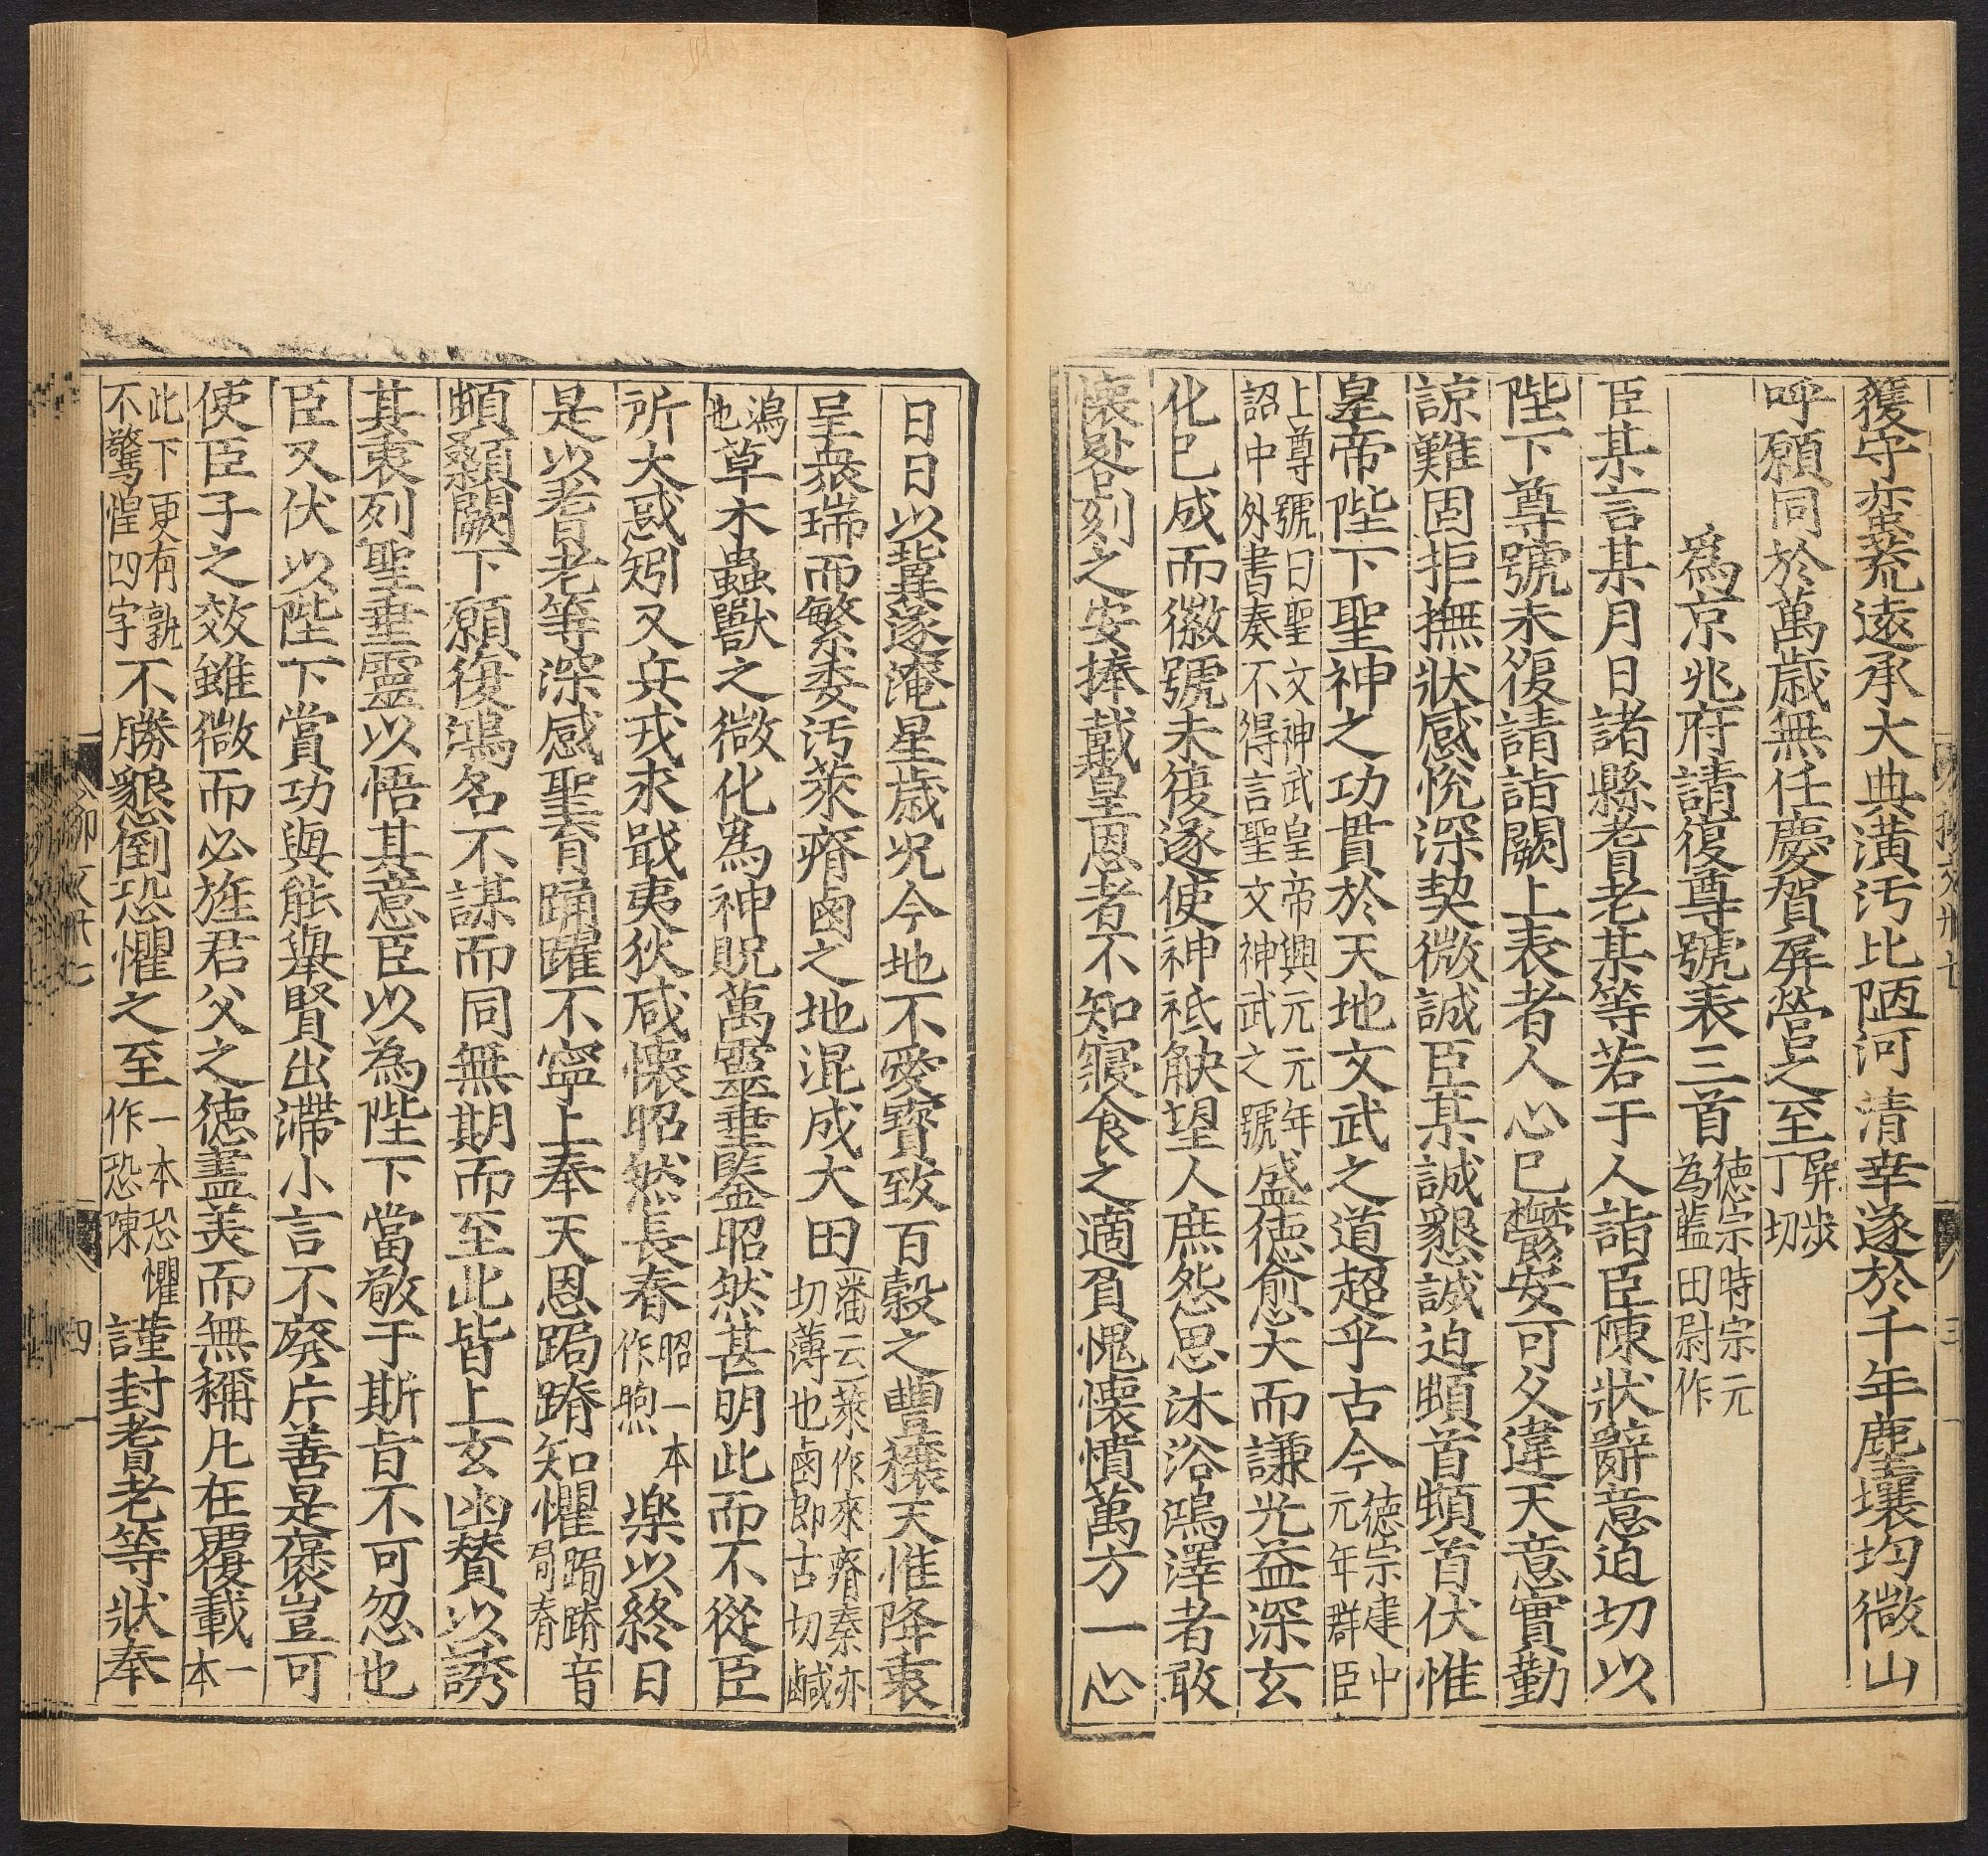 獲守蠻荒逺承大典潢汚比陋河清幸遂於千年塵壤均微山
呼願同於萬歲無任慶賀屏營之至屏歩丁切
爲京兆府請復尊號表三首徳宗時宗元為藍田尉作
臣某言某月日諸縣耆老某等若干人詣臣陳狀辭意迫切以
陛下尊號未復請詣闕上表者人心巳鬱安可久違天意實勤
諒難固拒撫狀感悅深契微誠臣某誠懇誠迫頓首頓首伏惟
皇帝陛下聖神之功貫於天地文武之道超乎古今徳宗建中元年群臣
上尊號曰聖文神武皇帝興元元年詔中外書奏不得言聖文神武之號盛徳愈大而謙光益深玄
化巳成而徽號未復遂使神祗觖望人庶怨思沐浴鴻澤者敢
懷晷刻之安捧戴皇恩者不知寢食之適負愧懷憤萬方一心
日日以冀遂淹星歲况今地不愛寳致百穀之豐穰天惟降衷
呈衆瑞而繁委汚萊瘠鹵之地混成大田潘云萊作來瘠秦亦切薄也鹵即古切鹹
潟也草木蟲獸之微化為神貺萬靈垂鑒昭然甚明此而不從臣
所大惑矧又兵戎求戢夷狄咸懷昭然長春昭一本作煦樂以終日
是以耆老等深感聖育踊躍不寧上奉天恩跼蹐知懼跼蹐音局脊
頓顙闕下願復鴻名不謀而同無期而至此皆上玄幽賛以誘
其衷列聖垂靈以悟其意臣以為陛下當敬于斯旨不可忽也
臣又伏以陛下賞功與能舉賢出滯小言不廢片善是褒豈可
使臣子之效雖微而必旌君父之徳盡美而無稱凡在覆載一本
此下更有孰不驚惶四字不勝懇倒恐懼之至一本恐懼作恐陳謹封耆老等狀奉